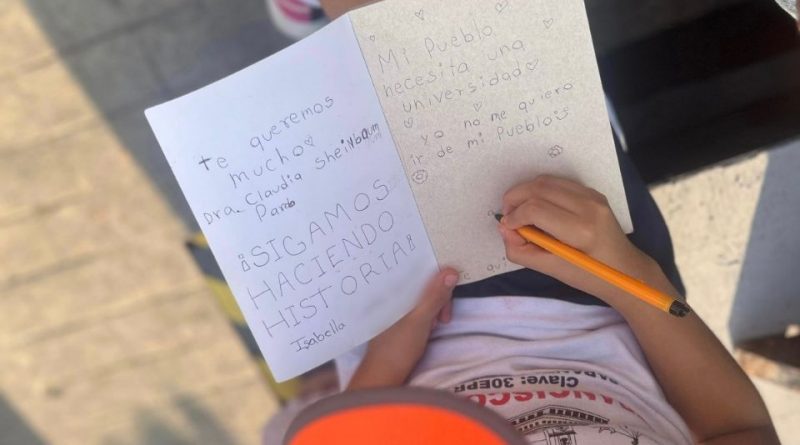 te queremos
mucho♡
Dra. Claudia Sheinbaum
Pardo
¡SIGAMOS
HACIENDO
HISTORIA!
Isabella
Mi Pueblo
necesita una
universidad♡
yo no me quiero
ir de mi Pueblo
e qui
Clave: 30EPR